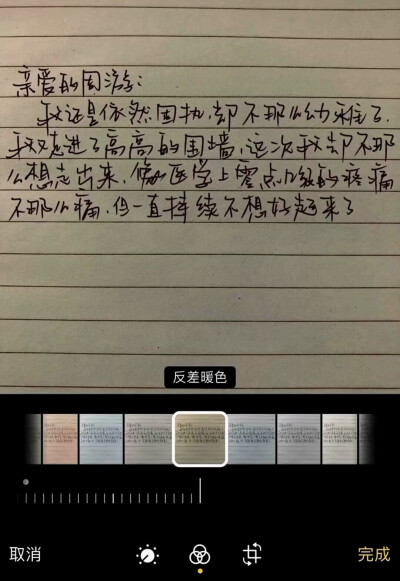 亲爱的周游:
我还是依然固执,却不那么幼稚了.
我又走进了高高的围墙,这次我却不那
么想走出来,像如医学上零点几级的疼痛
不那么痛,但一直持续不想好起来了
反差暖色
取消
完成